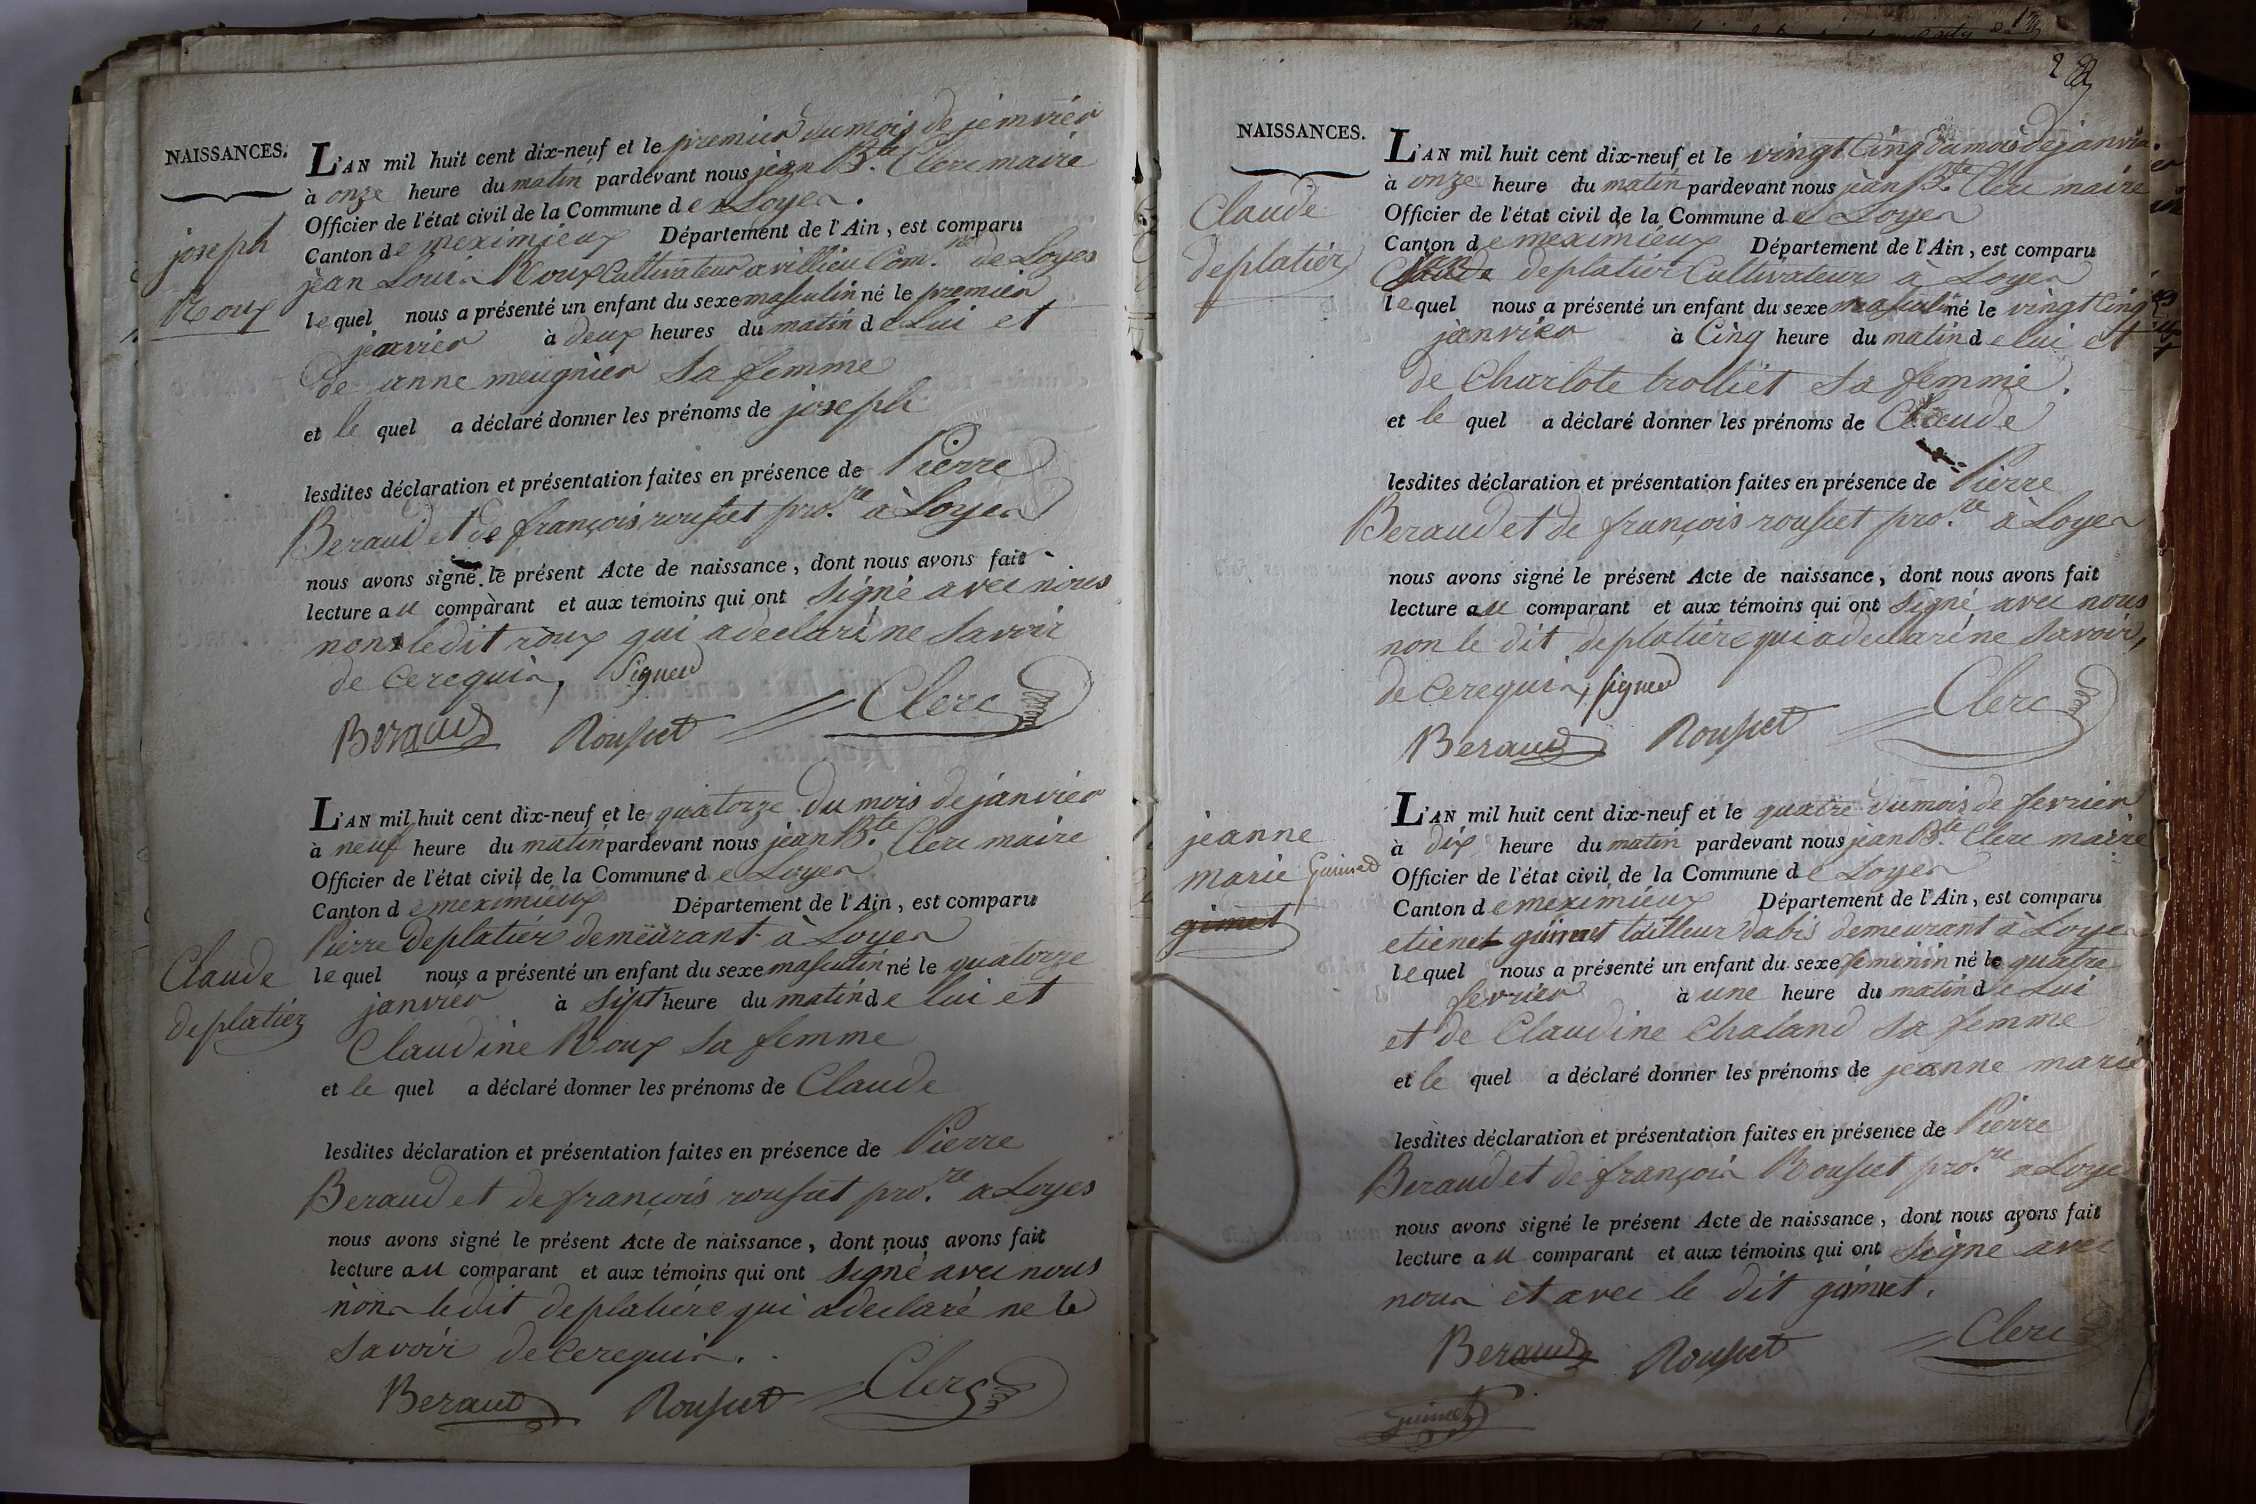 NAISSANCES.
joseph
Roux
L'AN mil huit cent dix-neuf et le premier du mois de jemvier
à onze heure du matin pardevant nous jean B.te Clerc maire
Officier de l'état civil de la Commune de Loyes.
Canton de meximieux Département de l'Ain, est comparu
jean Louis Roux Cultivateur a villieu Com.ne de Loyes
lequel nous a présenté un enfant du sexe masculin né le premier
janvier à deux heures du matin de Lui et
de anne meugnier sa femme
et le quel a déclaré donner les prénoms de joseph
lesdites déclaration et présentation faites en présence de Pierre
Beraud et de françois rousset pro.re à Loyes
nous avons signé le présent Acte de naissance, dont nous avons fait
lecture au comparant et aux témoins qui ont signé avec nous
non ledit roux qui a declaré ne savoir
de cerequis, signer
Beraud Rousset Clerc
L'AN mil huit cent dix-neuf et le quatorze du mois de janvier
à neuf heure du matin pardevant nous jean B.te Clerc maire
Officier de l'état civil de la Commune de Loyes
Canton de meximieux Département de l'Ain, est comparu
Claude
deplatiér
Pierre deplatiér demeurant à Loyes
lequel nous a présenté un enfant du sexe masculin né le quatorze
janvier à sept heure du matin de lui et
Claudine Roux sa femme
et le quel a déclaré donner les prénoms de Claude
lesdites déclaration et présentation faites en présence de Pierre
Beraud et de françois rousset pro.re a Loyes
nous avons signé le présent Acte de naissance, dont nous avons fait
lecture au comparant et aux témoins qui ont signé avec nous
non ledit deplatiére qui a declaré ne le
savoir de cerequis.
Beraud Rousset Clerc
2
NAISSANCES.
Claude
deplatiér
L'AN mil huit cent dix-neuf et le vingt Cinq du mois de janvier
à onze heure du matin pardevant nous jean B.te Clerc maire
Officier de l'état civil de la Commune de Loyes
Canton de meximieux Département de l'Ain, est comparu
deplatiér Cultivateur à Loyes
lequel nous a présenté un enfant du sexe masculin né le vingt Cinq
janvier à Cinq heure du matin de lui et
de Charlote trolliet sa femme.
et le quel a déclaré donner les prénoms de Claude
lesdites déclaration et présentation faites en présence de Pierre
Beraud et de françois rousset pro.re à Loyes
nous avons signé le présent Acte de naissance, dont nous avons fait
lecture au comparant et aux témoins qui ont signé avec nous
non le dit deplatiére qui a declaré ne savoir,
de cerequis, signer
Beraud Rousset Clerc
jeanne
marie Guimet
gimet
L'AN mil huit cent dix-neuf et le quatre du mois de fevrier
à dix heure du matin pardevant nous jean B.te Clerc maire
Officier de l'état civil de la Commune de Loyes
Canton de meximieux Département de l'Ain, est comparu
etienet guimet tailleur dabis demeurant à Loyes
lequel nous a présenté un enfant du sexe feminin né le quatre
fevrier à une heure du matin de Lui
et de Claudine Chaland sa femme
et le quel a déclaré donner les prénoms de jeanne marie
lesdites déclaration et présentation faites en présence de Pierre
Beraud et de françois Rousset pro.re a Loyes
nous avons signé le présent Acte de naissance, dont nous avons fait
lecture au comparant et aux témoins qui ont signé avec
nous et avec le dit guimet.
Beraud Rousset Clerc
Guimet